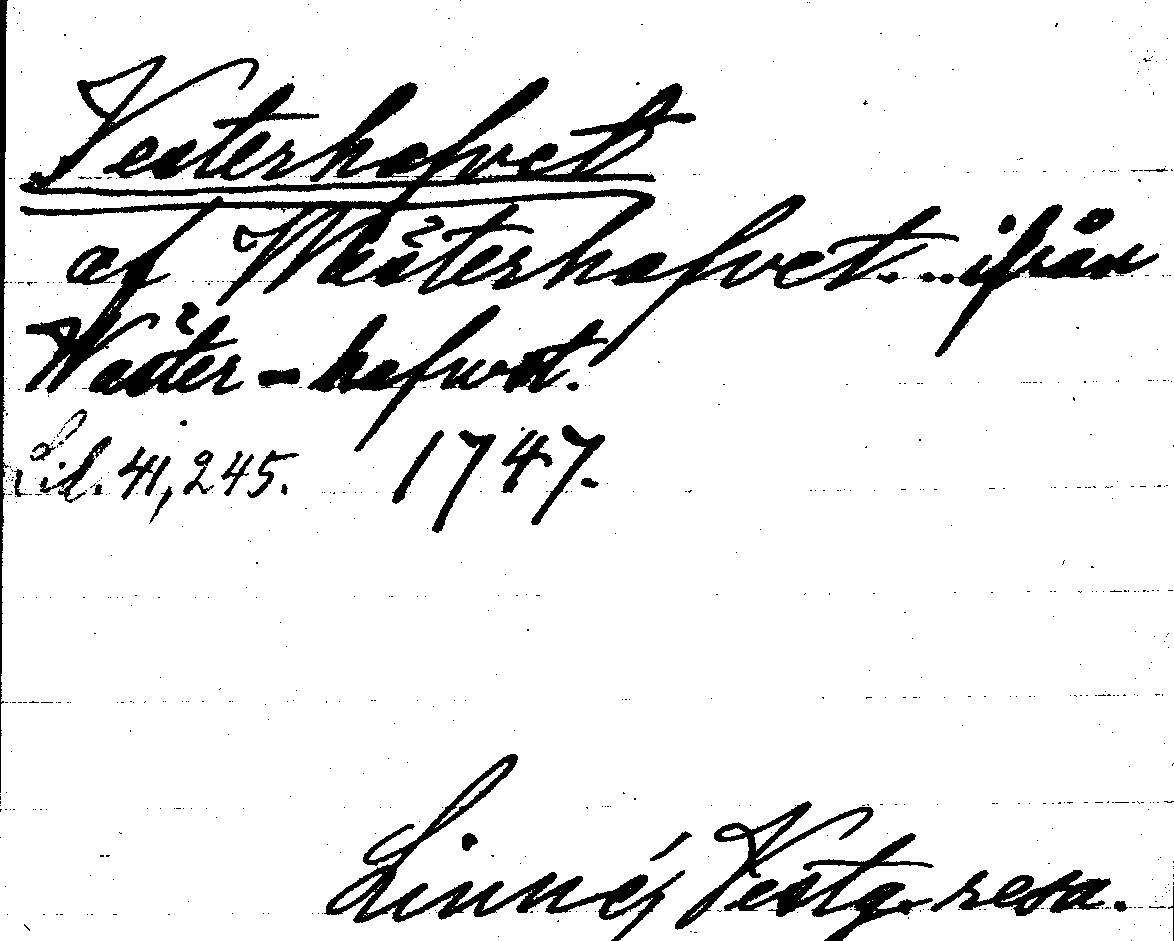 Vesterhafvet
af Wästerhafvet. .. ifrån
Wäster-hafwet.
Sid. 41, 245. 1747.
Linnés Vestg. resa.